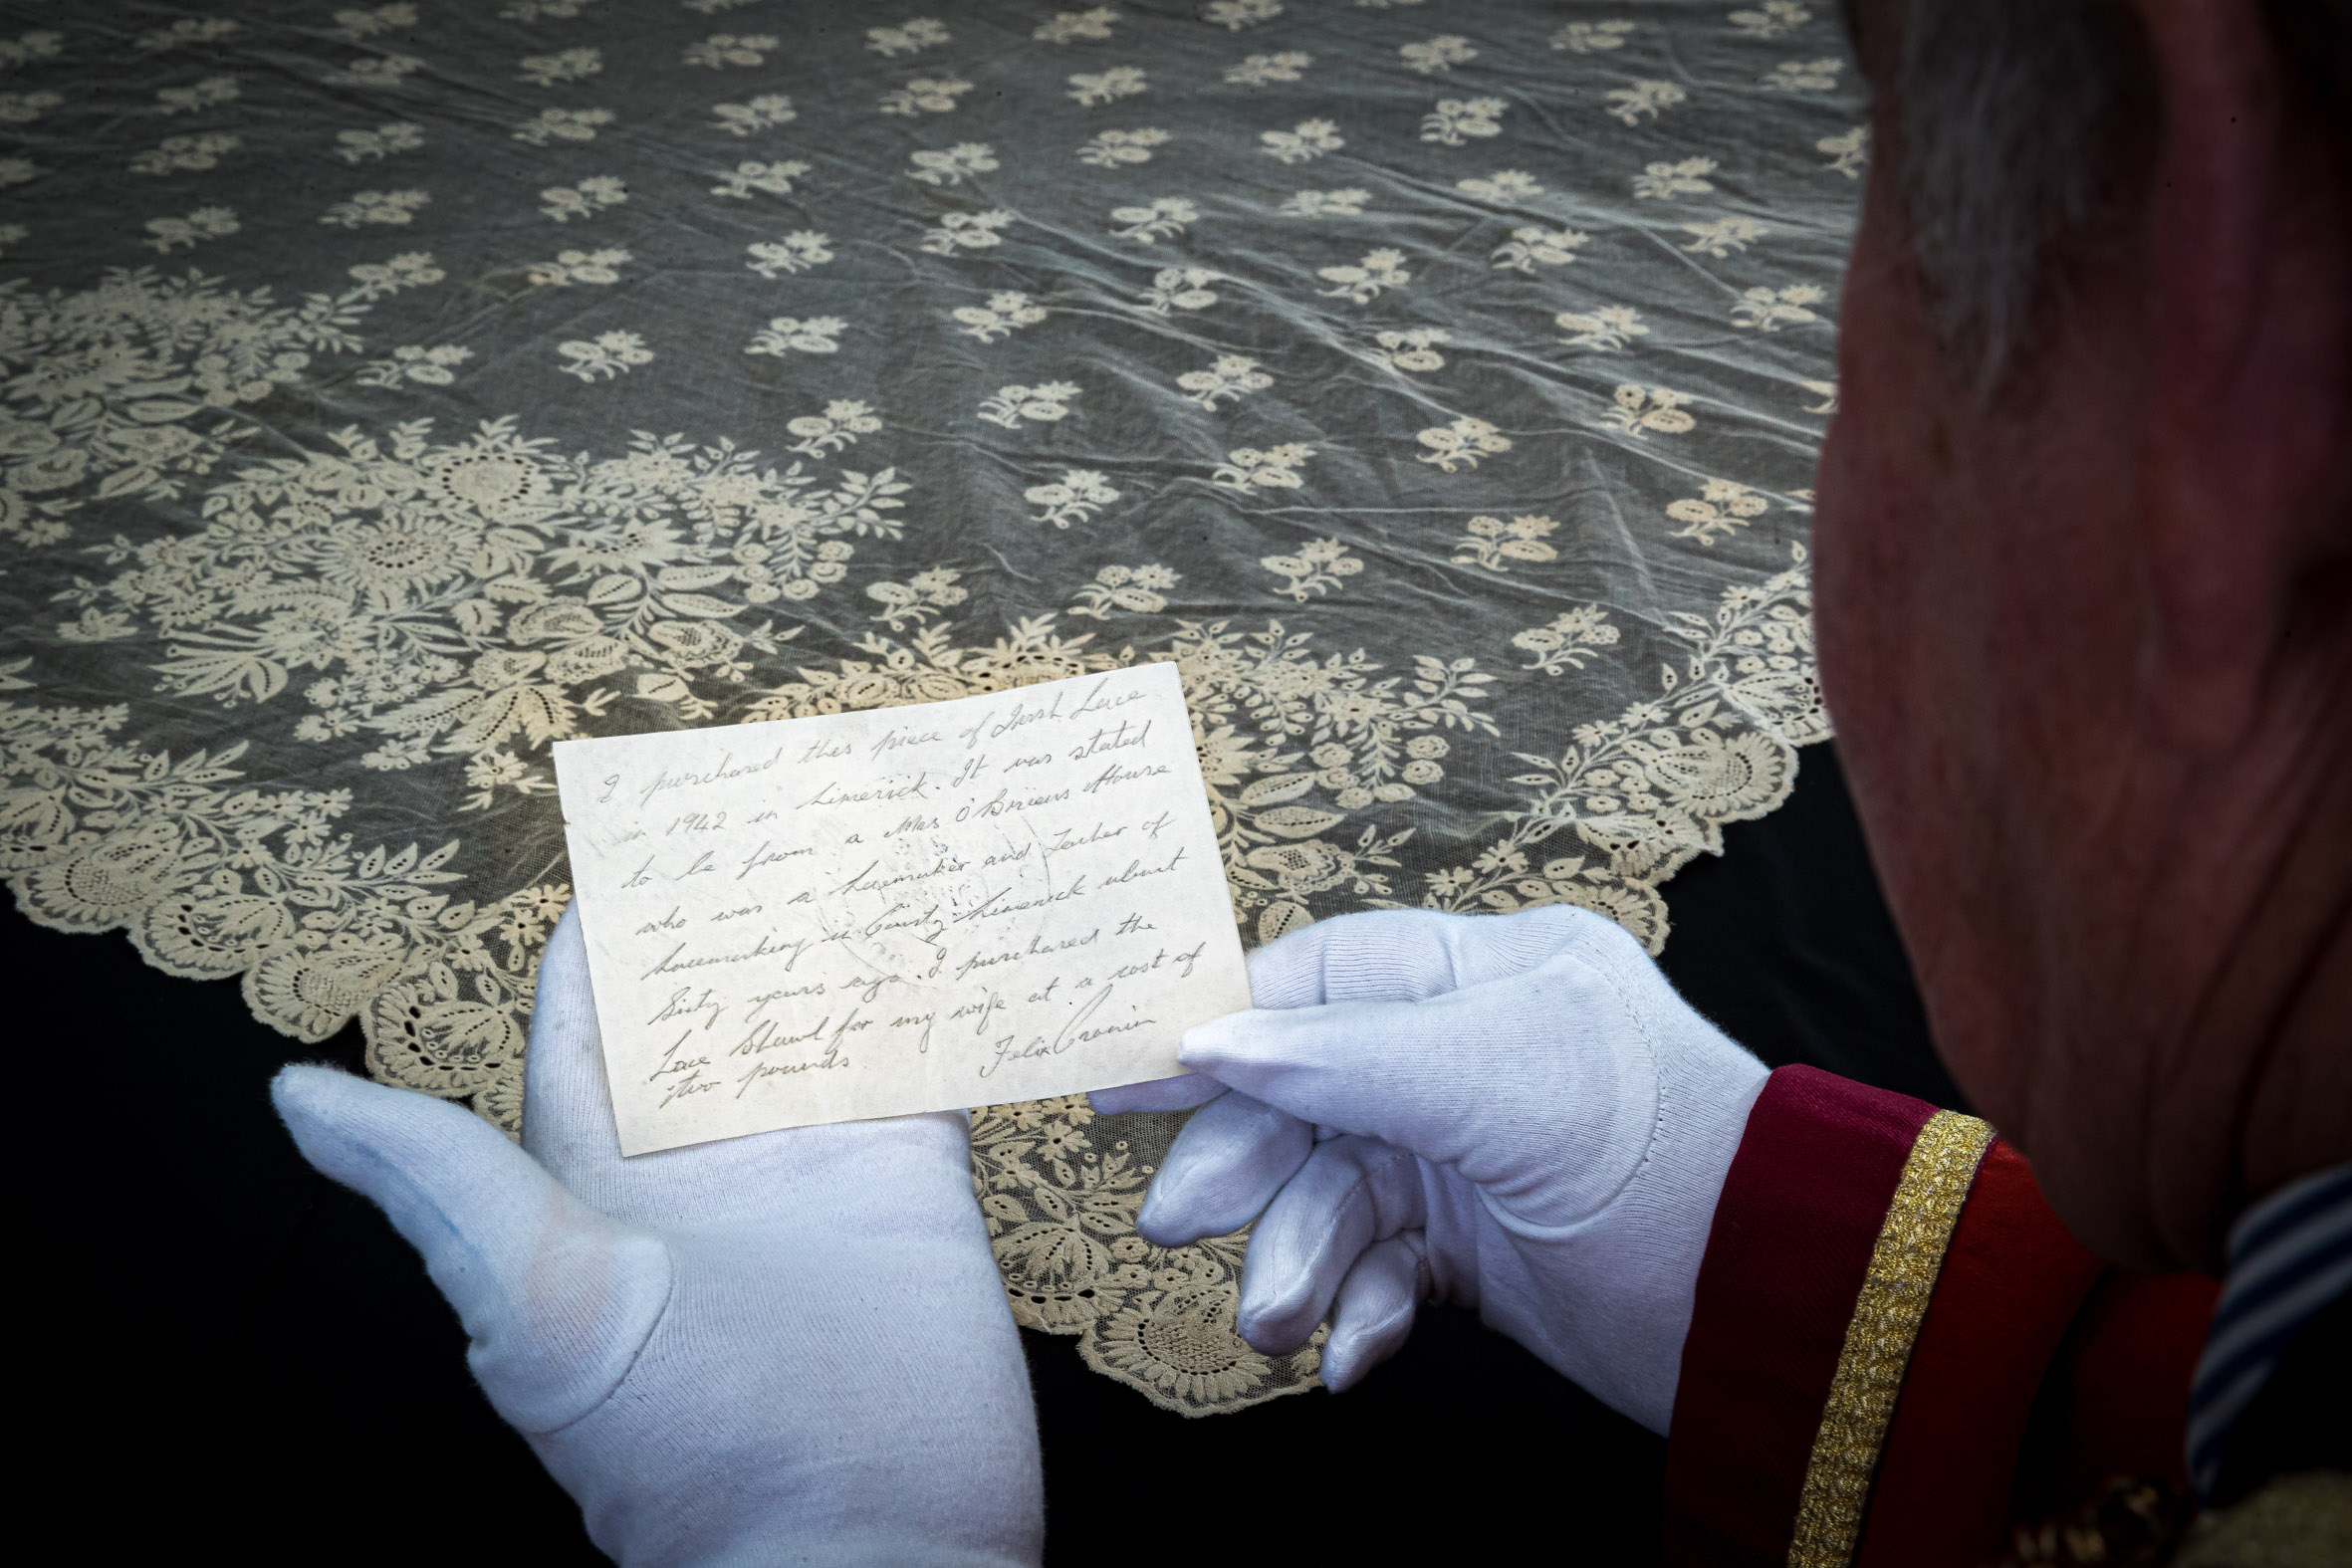 I purchased this piece of Irish Lace
in 1942 in Limerick. It was stated
to be from a Mrs O'Briens House
who was a Lacemaker and Teacher of
Lacemaking in County Limerick about
Sixty years ago. I purchased the
Lace Shawl for my wife at a cost of
two pounds
Felix Cronin